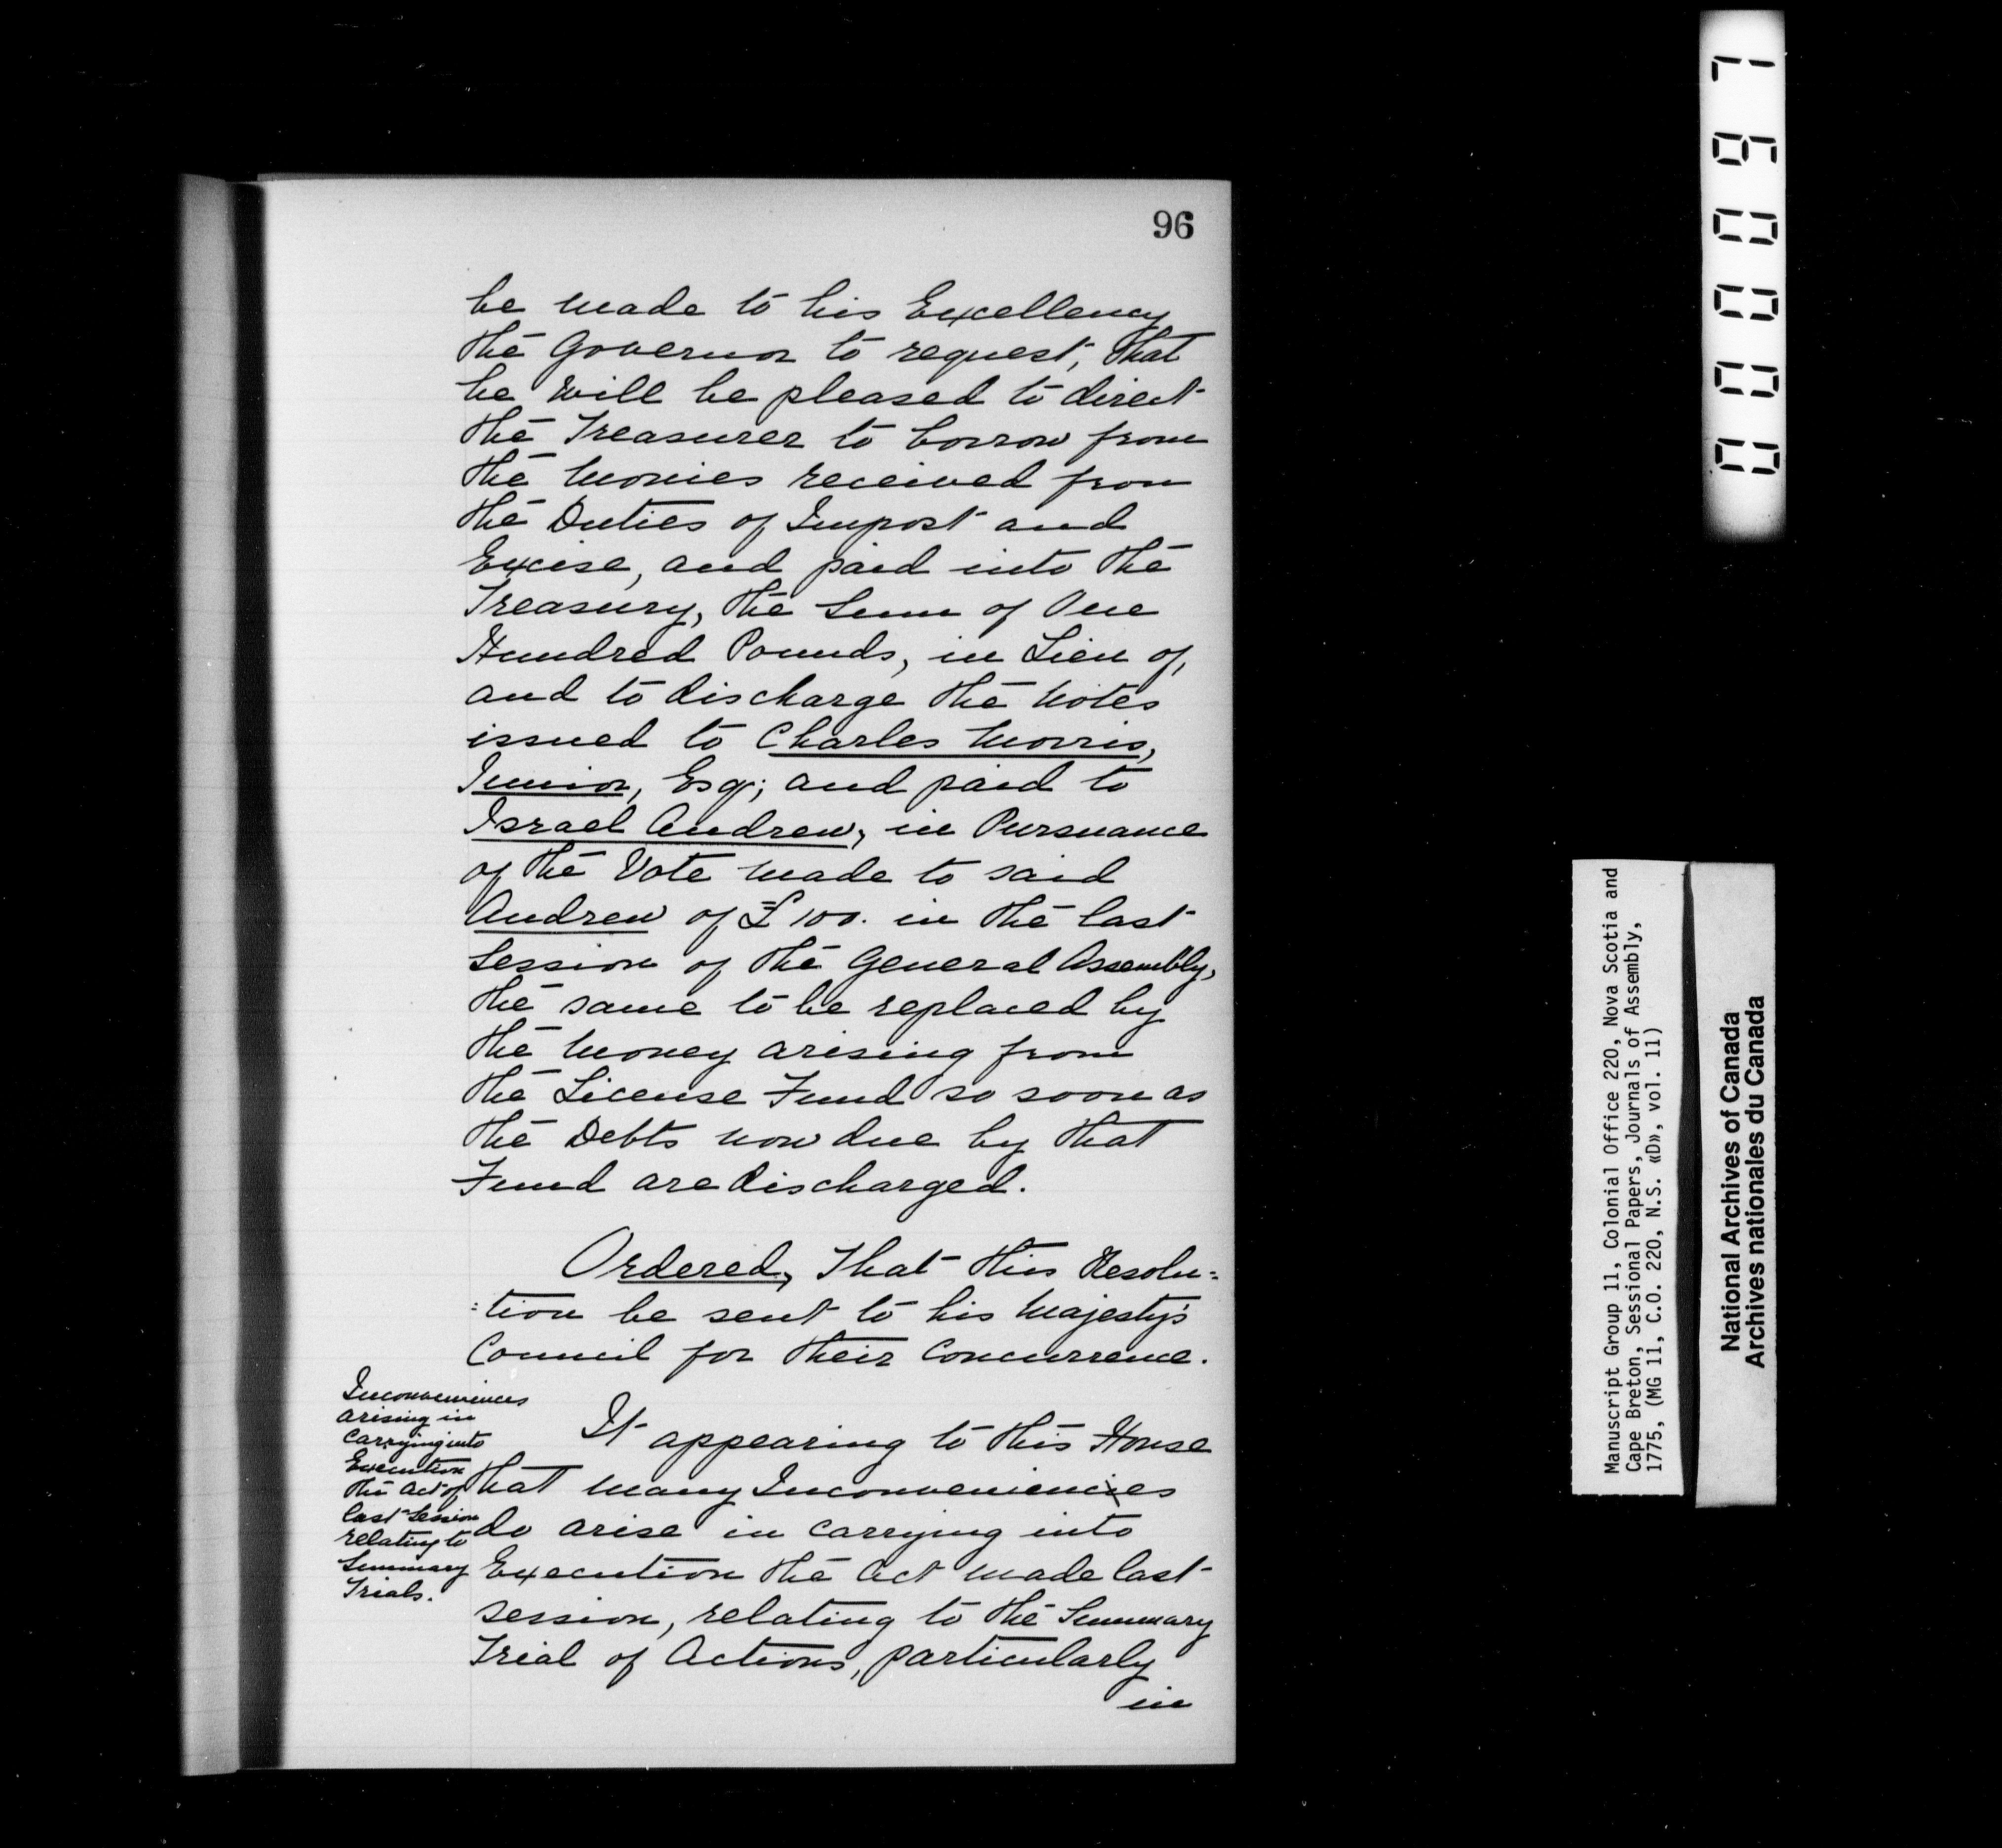 96
be made to his Excellency
the Governor to request, that
he will be pleased to direct
the Treasurer to borrow from
the Monies received from
the Duties of Impost and
Excise, and paid into the
Treasury, the Sum of One
Hundred Pounds, in Lieu of,
and to discharge the Notes
issued to Charles Morris,
Junior, Esqr; and paid to
Israel Andrew, in Pursuance
of the Vote made to said
Andrew of £100. in the last
Session of the General Assembly,
the same to be replaced by
the Money arising from
the License Fund so soon as
the Debts now due by that
Fund are discharged.
Ordered, That this Resolu=
=tion be sent to his Majesty's
Council for their Concurrence.
Inconveniences
arising in
carrying into
Execution
the Act of
last Session
relating to
Summary
Trials.
It appearing to this House
that many Inconveniencies
do arise in carrying into
Execution the Act made last
session, relating to the Summary
Trial of Actions, particularly
in
000097
Manuscript Group 11, Colonial Office 220, Nova Scotia and
Cape Breton, Sessional Papers, Journals of Assembly,
1775, (MG 11, C.O. 220, N.S. «D», vol. 11)
National Archives of Canada
Archives nationales du Canada